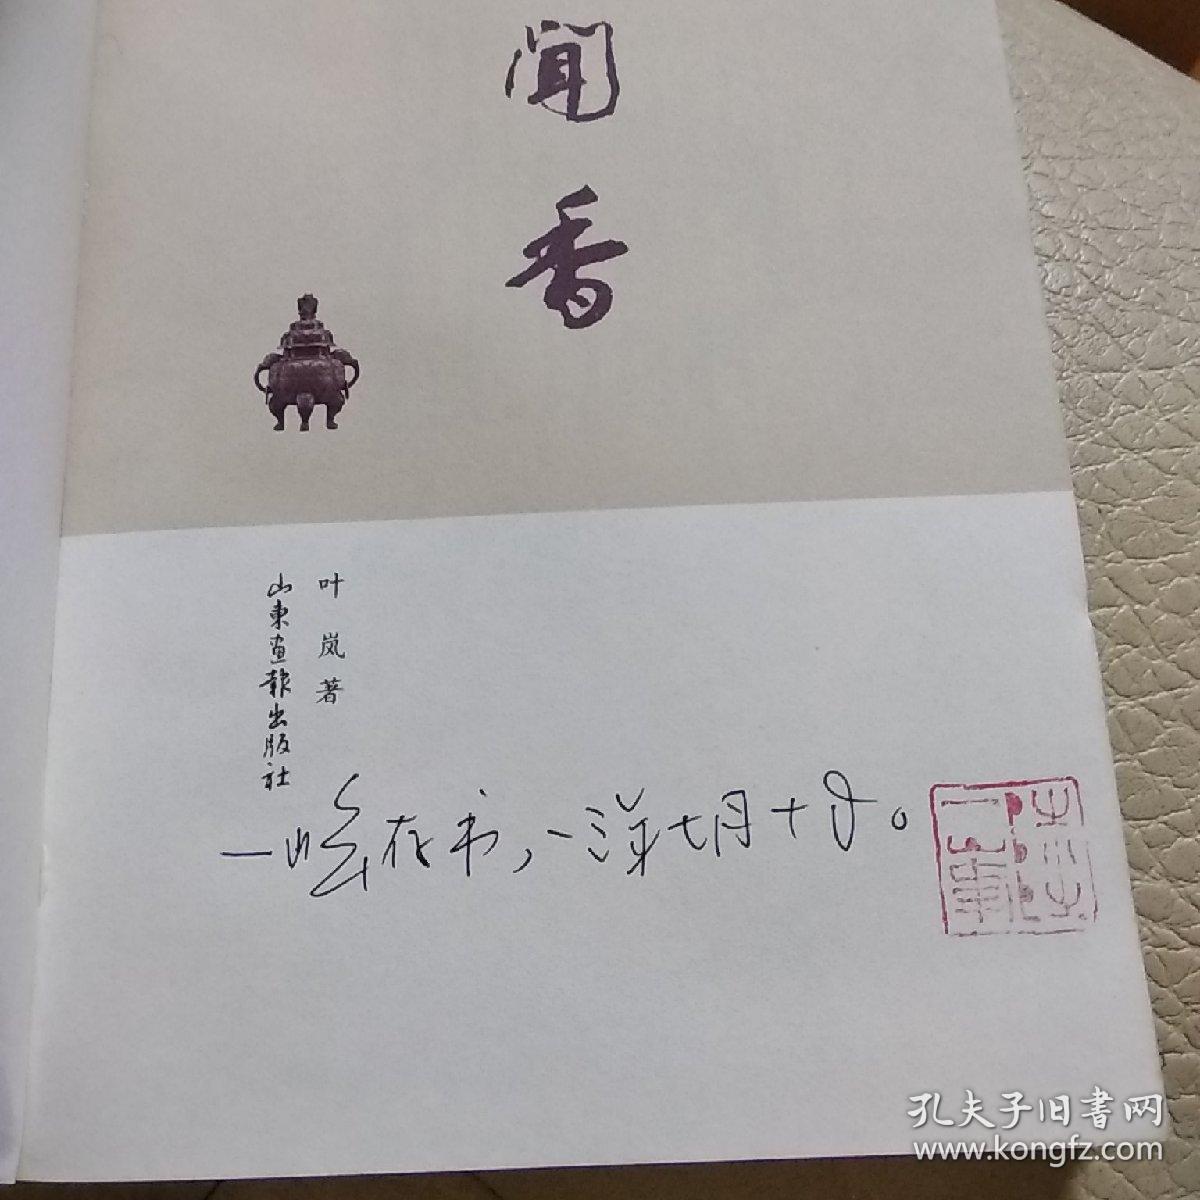 闻香
叶岚著
山東画報出版社
一山丝在书，一三年七月十日。
孔夫子旧書网
www.kongfz.com